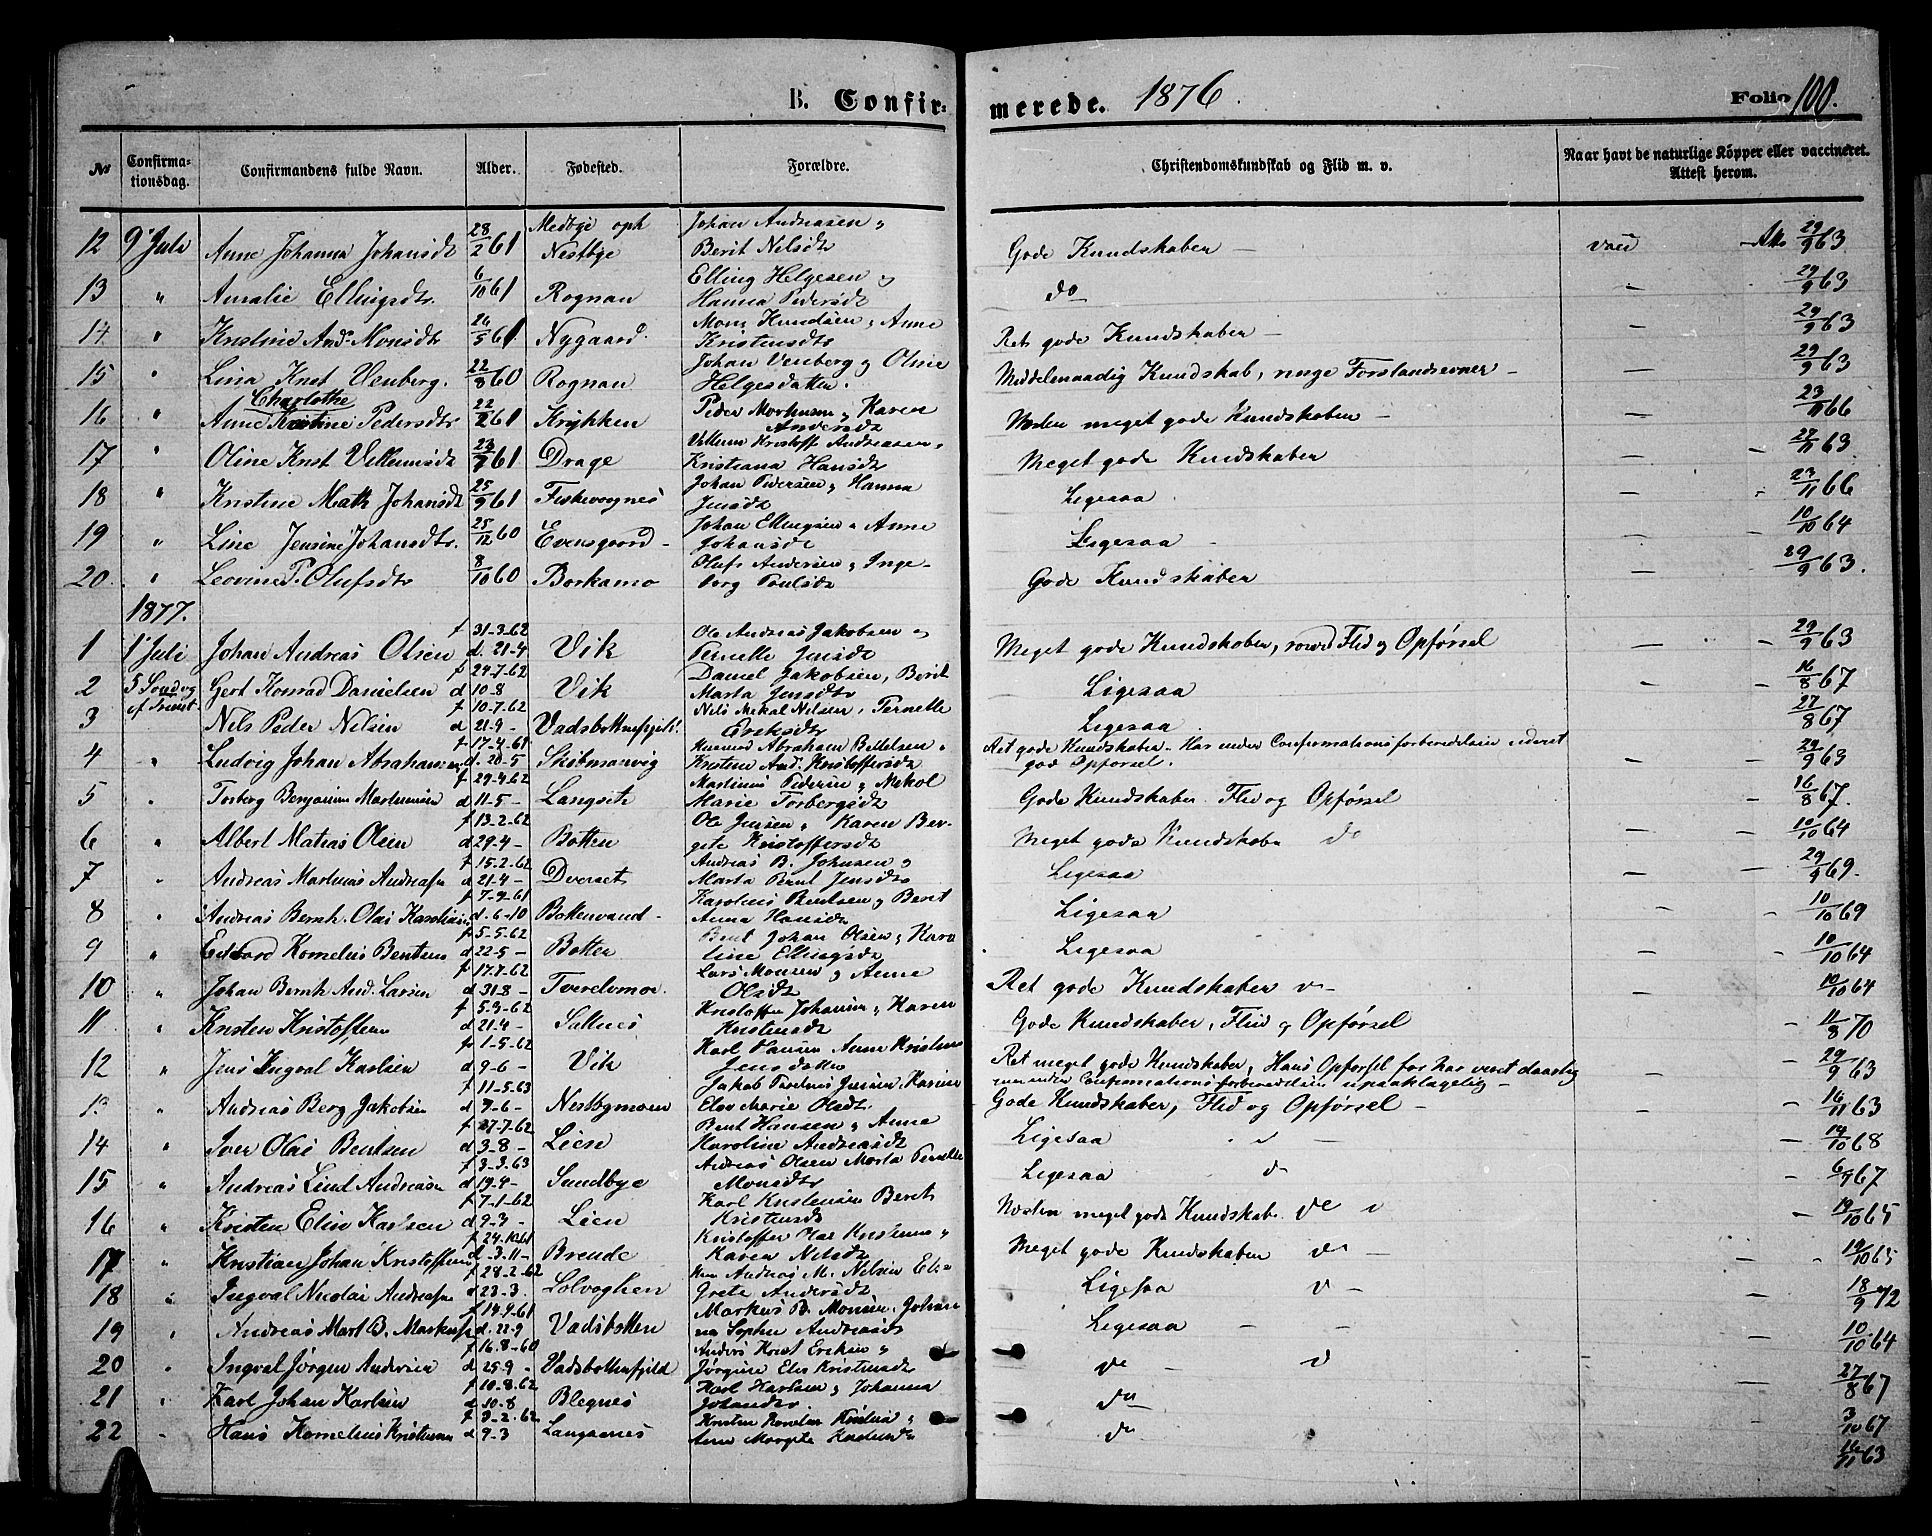 B. Confirmerede. 1876. Folio 100.
No Confirmationsdag. Confirmandens fulde Navn. Alder. Fødested. Forældre. Christendomskundskab og Flid m. v. Naar havt de naturlige Kopper eller vaccineret. Attest herom.
12 9' Juli Anne Johanna Johansdt 28/2 61 Medbye oph Nestbye Johan Andreasen " Berit Nilsdt Gode Kundskaber – 29/9 63
13 " Amalie Ellingsdtr 6/10 61 Rognan Elling Helgesen og Hanna Pedersdt do – 29/9 63
14 " Kristine And. Monsdtr 26/5 61 Nygaard. Mons Knudsen, Anne Kristensdtr Ret gode Kundskaber – – 29/9 63
15 " Lina Knst Venberg. 22/8 60 Rognan Johan Venberg og Oline Helgesdatter. Middelmaadig Kundskab, ringe Forstandsevner – – 29/9 63
16 " Anne Charlothe Pedersdtr 22/2 61 Krykken Peder Morhusen, Karen Andersdt Næsten meget gode Kundskaber – – 23/11 66
17 " Oline Knst Villumsdt 23/7 61 Drage Villum Kristoff Andreasen, Kristiana Hansdt Meget gode Kundskaber – 27/11 63
18 " Kristine Math Johansdt 25/9 61 Fiskevognes Johan Pedersen, Hanna Jensdt Ligesaa – 23/11 66
19 " Line Jensine Johansdtr. 25/12 60 Evensgaard Johan Ellingsen, Anne Johansdt Ligesaa – – 10/10 64
20. " Leovine P. Olufsdtr 8/10 60 Borkamo Olufs Andersen, Ingeborg Poulsdt Gode Kundskaber – 29/9 63.
1877.
1 1' Juli Johan Andreas Olsen f 31-3-62 d. 21-4 Vik Ole Andreas Jakobsen og Pernelle Jensdt Meget gode Kundskaber, Flid og Opførsel – 29/9 63
2 5 Søndag ef Trinit Gert Konrad Danielsen f 24-7-62 d 10-8 Vik Daniel Jakobsen, Berit Marta Jensdtr Ligesaa – 16/8 67
3 Nils Peder Nilsen f 10-7-62 d 21-9- Vadsbottenfjeld Nils Mikal Nilsen, Pernelle Eriksdtr Ligesaa 27/8 67
4 " Ludvig Johan Abrahamsen f 17-4-61 d. 20-5 Skibmanvig Abraham Bettelsen, Kristine And. Kristoffersdt Ret gode Kundskaber. Har under Confirmationsforberedelsen god Opførsel. – 29/9 63
5 " Torberg Benjamin Martinusen f 29-4-62 d 11-5- Langset Martinus Pedersen, Nikol Marie Torbergsdt Gode Kundskaber Flid og Opførsel – 16/8 67.
6 " Albert Matias Olsen f 13-2-62 d 29-4- Botten Ole Jensen, Karen Bergite Kristoffersdt Meget gode Kundskabe – 10/10 64
7 " Andreas Martinus Andreasen f 15-2-62 d 21-4- Dverset Andreas B. Johnsen og Marta Berit Jensdt Ligesaa – 29/9 69.
8 " Andreas Bernh. Olai Karolius f 7-9-61 d. 6-10 Bottenvand Karolius Bentsen og Berit Anna Hansdt Ligesaa – 10/10 69
9 " Edvard Kornelius Bentsen f 5-5-62 d 22-5- Botten Bent Johan Olsen, Karoline Ellingsdt Ligesaa – 10/10 64
10 " Johan Bernh And. Larsen f 17-7-62 d 31-8- Tverdvmoe. Lars Monsen og Anne Olsdt Ret gode Kundskaber – 10/10 64
11 " Kristen Kristoffersen f 5-3-62 d 21-4- Saltnes Kristoffer Johansen, Karen Kristensdt Gode Kundskaber, Flid og Opførsel – 11/8 70
12 " Jens Ingval Karlsen f 1-5-62 d 9-6- Vik Karl Hansen Anne Kristine Jensdatter Ret meget gode Kundskaber, Hans Opførsel før har været daarlig men under Confirmationsforberedelsen upaaklagelig – – 29/9 63
13 " Andreas Berg Jakobsen f 11-5-63 d 9-6- Nestbymoen Jakob Jensen Karine Elen Marie Olsdt. Gode Kundskaber, Flid og Opførsel – – 16/11 63
14 " Iver Olai Bentsen f 27-7-62 d 3-8- Lien Bent Hansen, Anne Karoline Andreasdt Ligesaa – 19/10 68
15 " Andreas Lind Andreasen f 3-3-63 d 19-4- Sundbye Andreas Olsen Marta Pernelle Monsdtr Ligesaa – 6/9 67
16 " Kristen Elin Karlsen f 7-1-62 d 9-3- Lien Karl Kristensen Berit Kristensdt Næsten meget gode Kundskab. – 19/10 65
17 " Kristian Johan Kristoffersen f 24-10 61 d. 3-11- Breude Kristoffer Olai Kristense, Karen Nilsdt Meget gode Kundskaber – 19/10 65
18 " Ingval Nicolai Andreasen f 28-2-62 d 23-3. Lolvoghen Andreas M. Nilsen Else Grete Andersdt Ligesaa – 18/9 72
19 " Andreas Mart B. Markusen f 14-9-61 d. 22-9 Vadsbotten Markus B. Monsen, Johanna Sophie Andreasdt Ligesaa – – 10/10 64
20 " Ingval Jørgen Andersen f 16-8-60 d 25-9- Vadsbottenfjeld Anders Knst Eriksen " Jørgine Elis Kristensdt do – 27/8 67
21 " Karl Johan Karlsen f 10-8-62 d 10-8 Blegnes Karl Karlsen, Johanna do – 3/10 67
22 " Hans Kornelius Kristensen f 9-2-62 d 9-3 Langaanes Kristen, Anne Margrete do 16/11 63